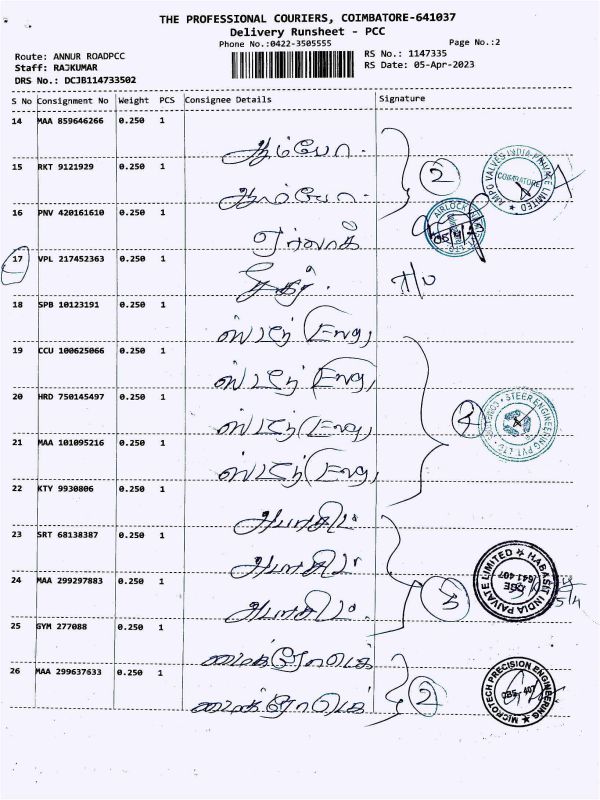 THE PROFESSIONAL COURIERS, COIMBATORE-641037
Delivery Runsheet - PCC
Phone No.:0422-3505555
Page No.:2
Route: ANNUR ROADPCC
RS No.: 1147335
Staff: RAJKUMAR
RS Date: 05-Apr-2023
DRS No.: DCJB114733502
S No Consignment No Weight PCS Consignee Details Signature
14 MAA 859646266 0.250 1
ஆம்போ
15 RKT 9121929 0.250 1
ஆம்போ
16 PNV 420161610 0.250 1
ஏர்லாக்
17 VPL 217452363 0.250 1
18 SPB 10123191 0.250 1
ஸ்டீர் (Eng,
19 CCU 100625066 0.250 1
ஸ்டீர் (Eng,
20 HRD 750145497 0.250 1
ஸ்டீர் (Eng,
21 MAA 101095216 0.250 1
ஸ்டீர் (Eng,
22 KTY 9930806 0.250 1
23 SRT 68138387 0.250 1
24 MAA 299297883 0.250 1
25 GYM 277088 0.250 1
மைக்ரோடெக்
26 MAA 299637633 0.250 1
மைக்ரோடெக்
2
AMPO VALVES INDIA PRIVATE LIMITED
COIMBATORE
AIRLOCK
4
STEER ENGINEERING PVT. LTD
3
HABASIT INDIA PRIVATE LIMITED
641 407
2
MICROTECH PRECISION ENGINEERING